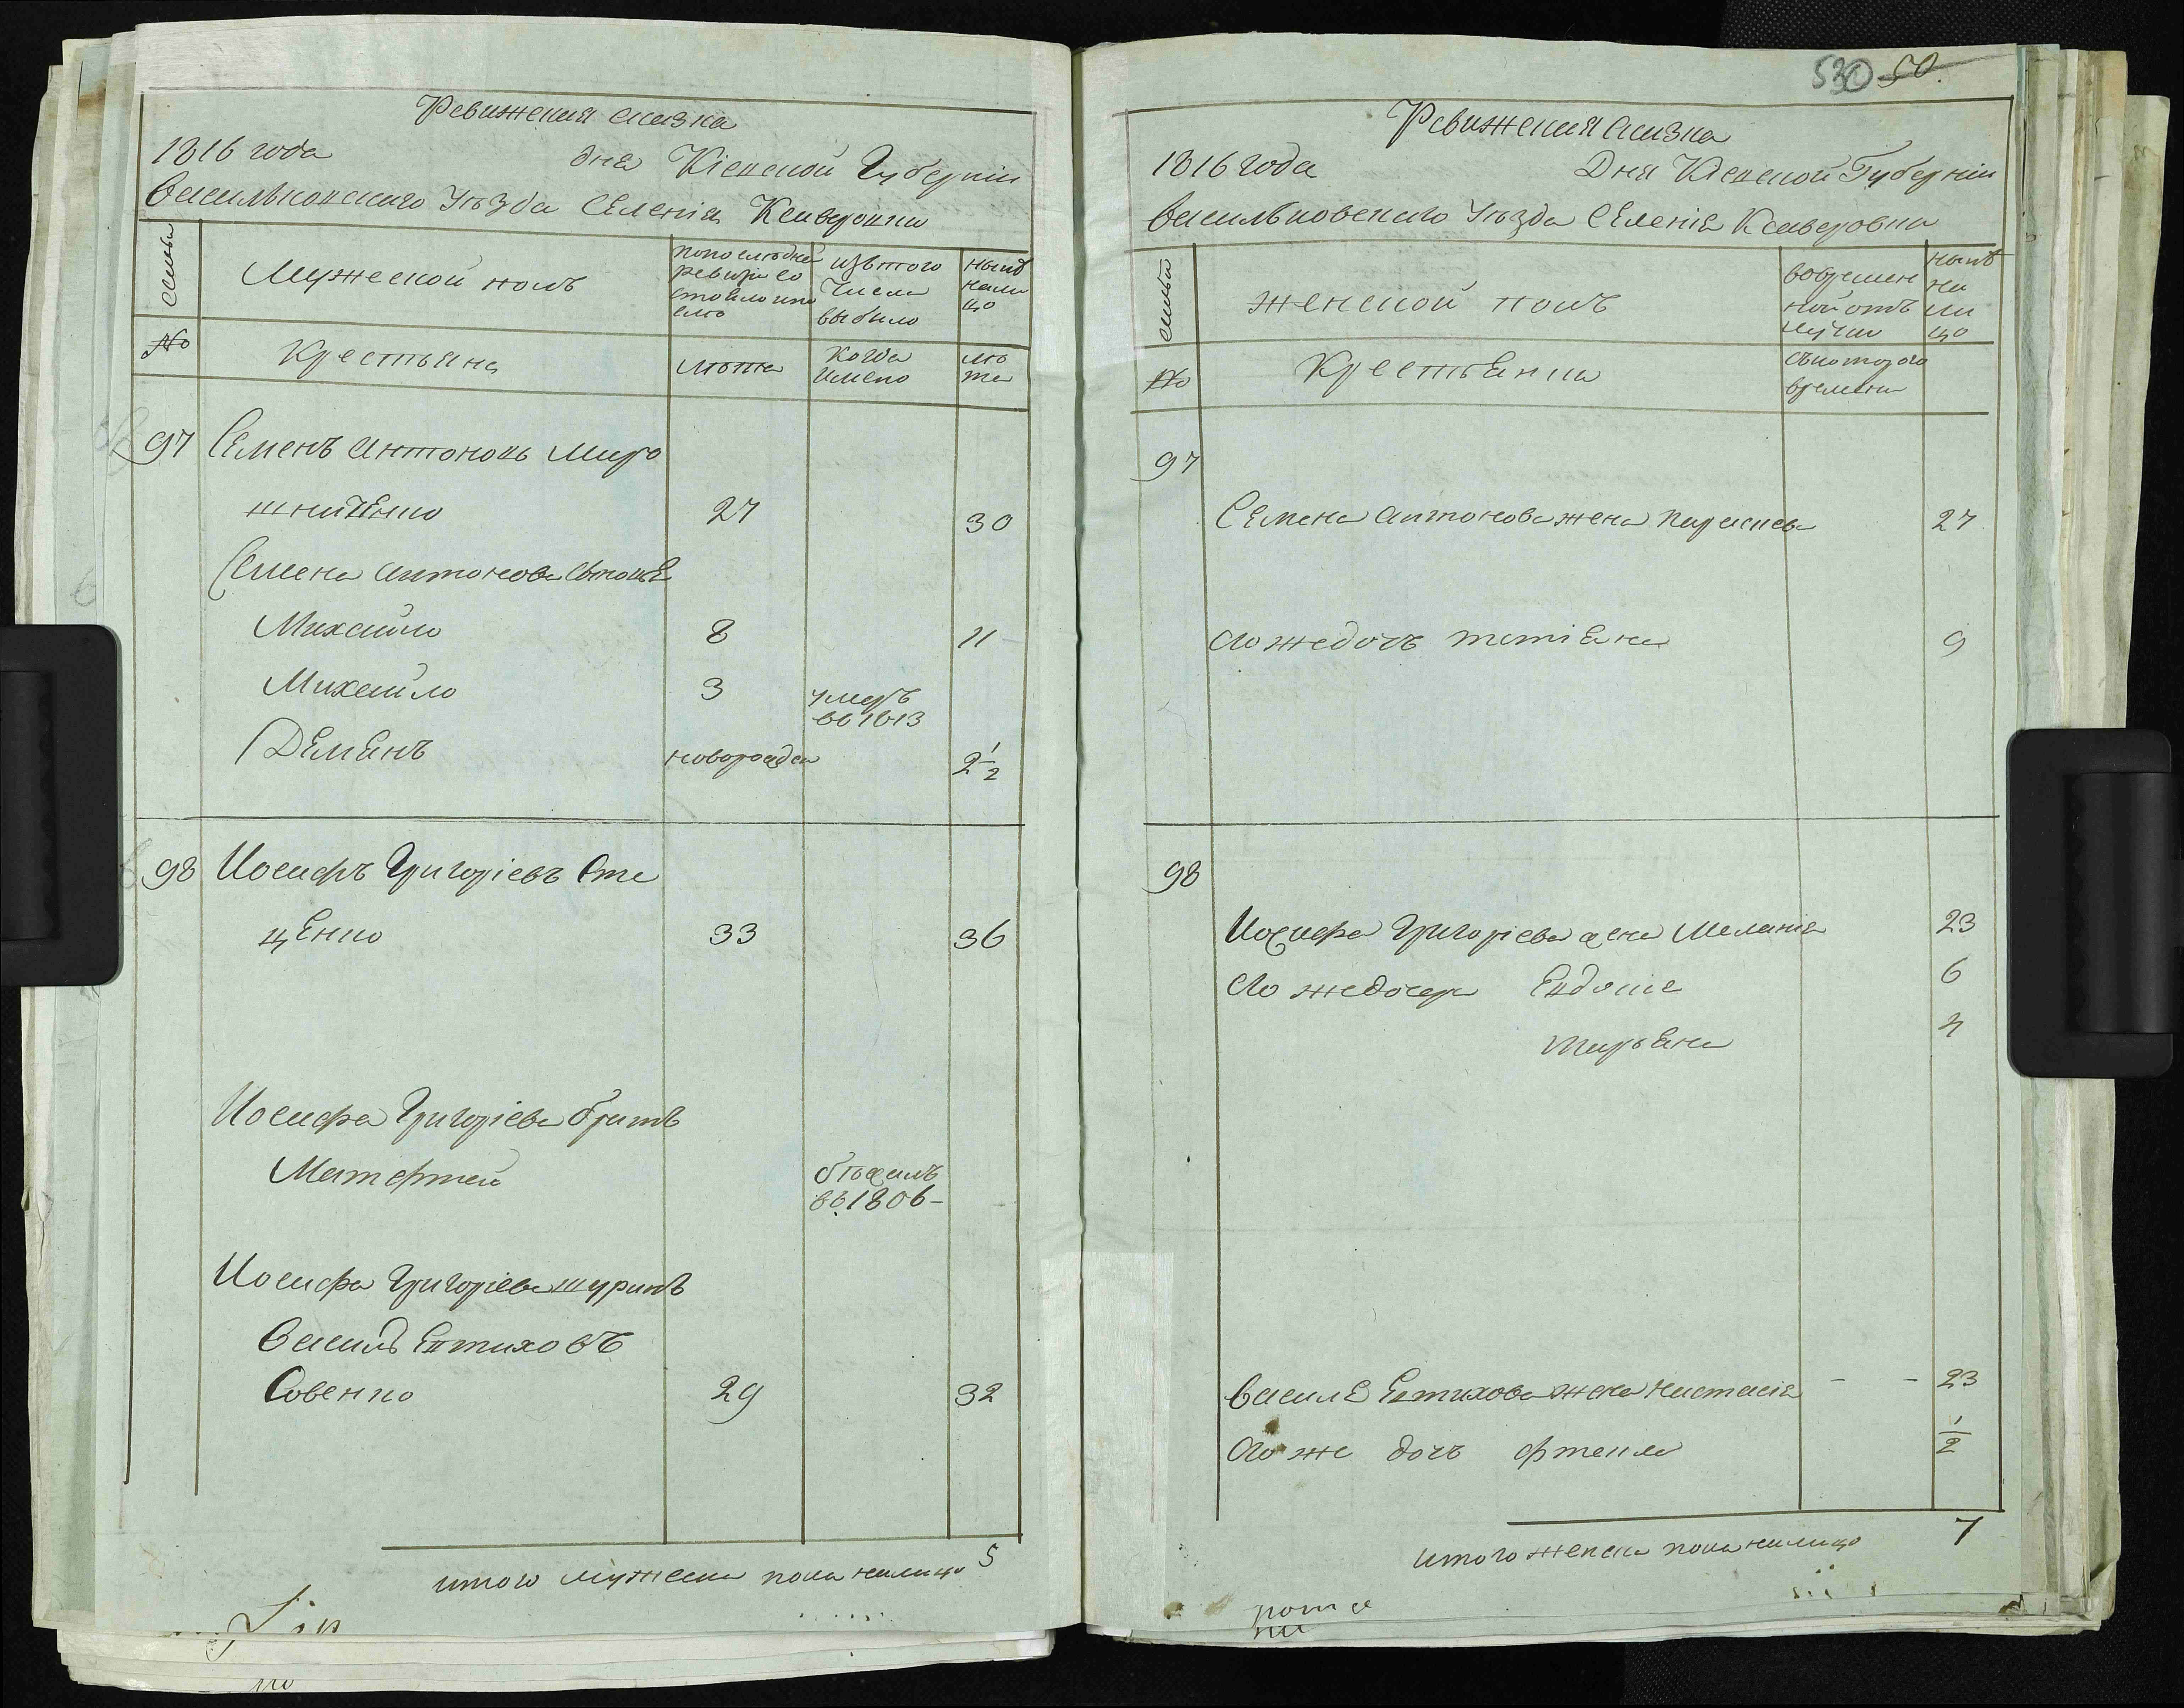 Ревижская сказка
1816 года дня Кіевской Губерніи
Васильковскаго Уѣзда Селенія Ксаверовки
семьи
Мужеской полъ
по последней ревизіи состояло и по
изъ того числа выбыло
нынѣ на лицо
№
Крестьяне
лѣта
когда имено
лѣта
97 Семенъ Антоновъ Миро
шниченко 27 30
Семена Антонова сыновья
Михайло 8 11
Михайло 3 умеръ въ 1813
Демянъ новорожден 2 1/2
98 Иосифъ Григоріевъ Сте
ценко 33 36
Иосифа Григоріева братъ
Матфтей бѣжалъ въ 1806 -
Иосифа Григоріева шуринъ
Василь Евтиховъ
Совенко 29 32
итого мужеска пола налицо 5
530 50.
Ревижская сказка
1816 года Дня Кіевской Губерніи
Васильковскаго Уѣзда Селенія Ксаверовки
семьи
женской полъ
во временной отлучки
нынѣ на лицо
№
Крестьянки
съ котораго времени
97
Семена Антонова жена Параска 27
его же дочь татіяна 9
98
Иосифа Григоріева жена Меланія 23
его же дочери Евдокія 6
марьяна 4
Василя Евтихова жена Настасія - - 23
его же дочь фтекла 1/2
итого женска пола налицо 7